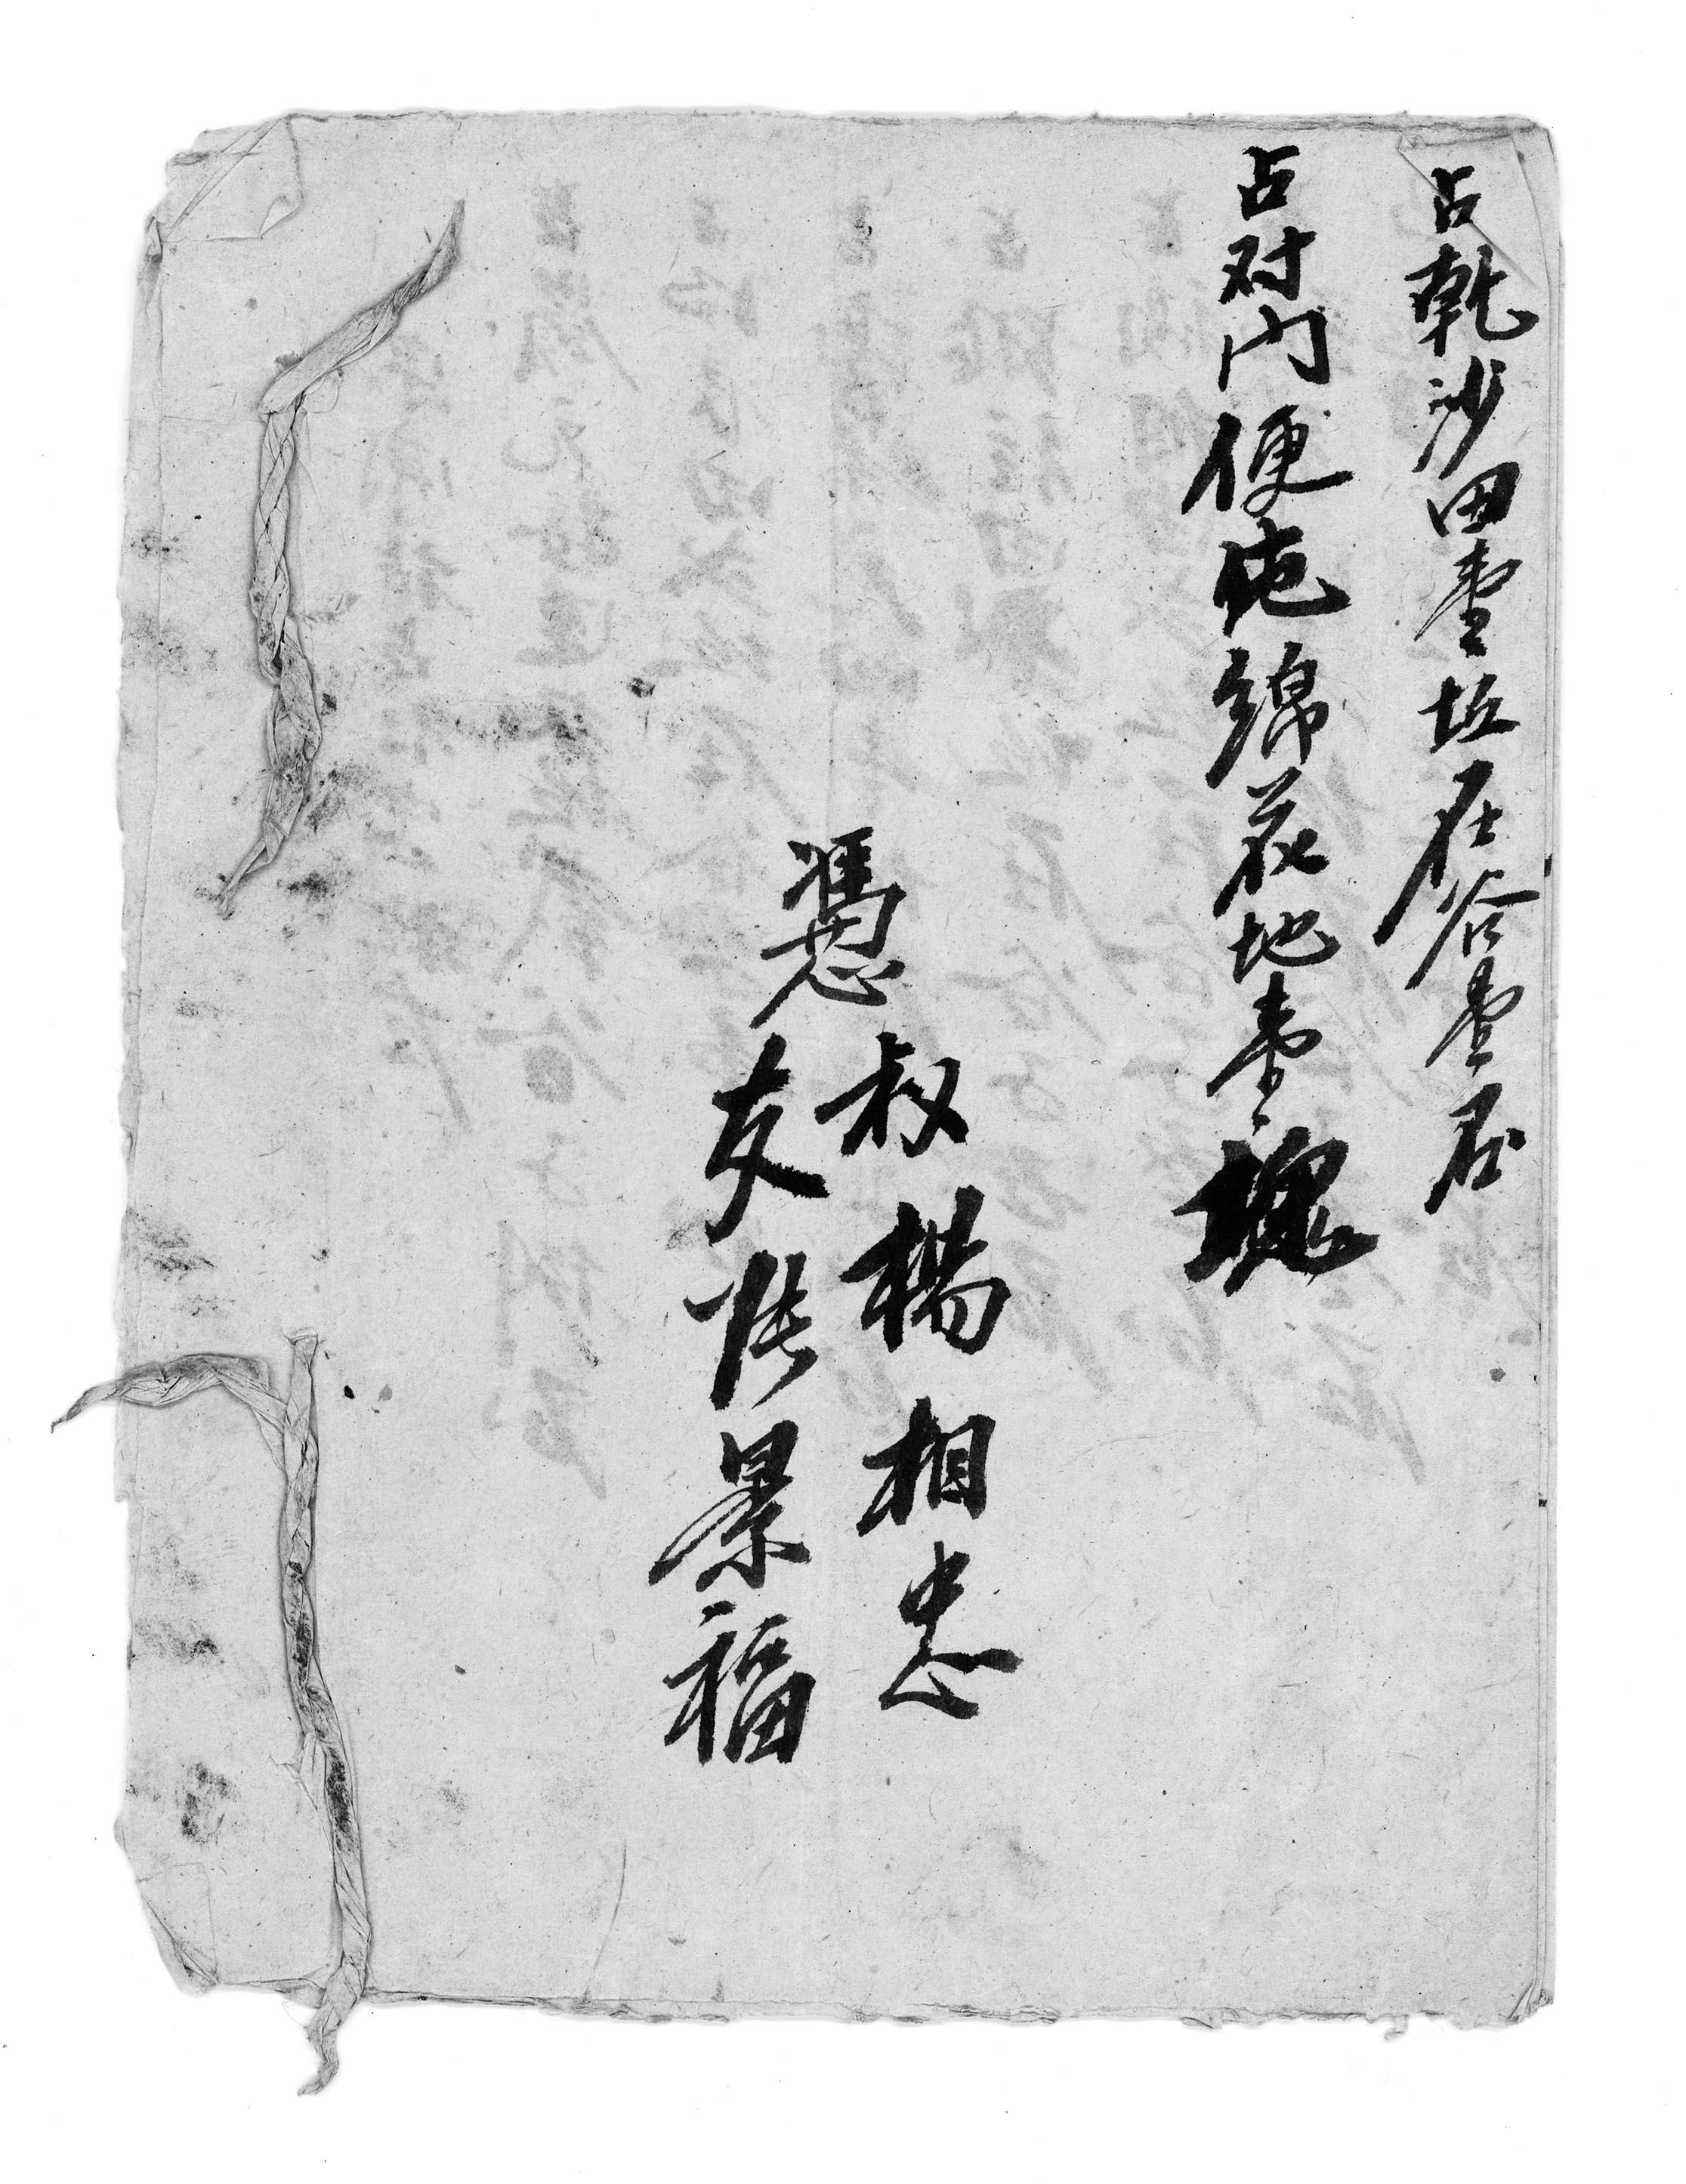 占乾沙田壹坵在谷壹石
占对门便 绵花地壹塊
憑
叔楊相忠
友張景福